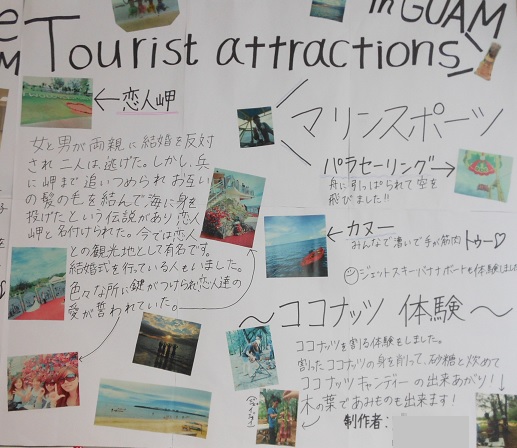 in GUAM
Tourist attractions
← 恋人岬
女と男が両親に結婚を反対
され二人は、逃げた。しかし、兵
に岬まで追いつめられお互い
の髪の毛を結んで、海に身を
投げたという伝説があり恋人
岬と名付けられた。今では恋人
との観光地として有名です。
結婚式を行っている人もいました。
色々な所に鍵がつけられ恋人達の
愛が誓われていた。
マリンスポーツ
パラセーリング→
舟に引っぱられて空を
飛びました!!
← カヌー
みんなで漕いで手が筋肉トゥー♡
ジェットスキーバナナボートも体験しました
～ココナッツ 体験～
ココナッツを割る体験をしました。
割ったココナッツの身を削って、砂糖と炒めて
ココナッツキャンディーの出来あがり!!
木の葉であみものも出来ます!
制作者: